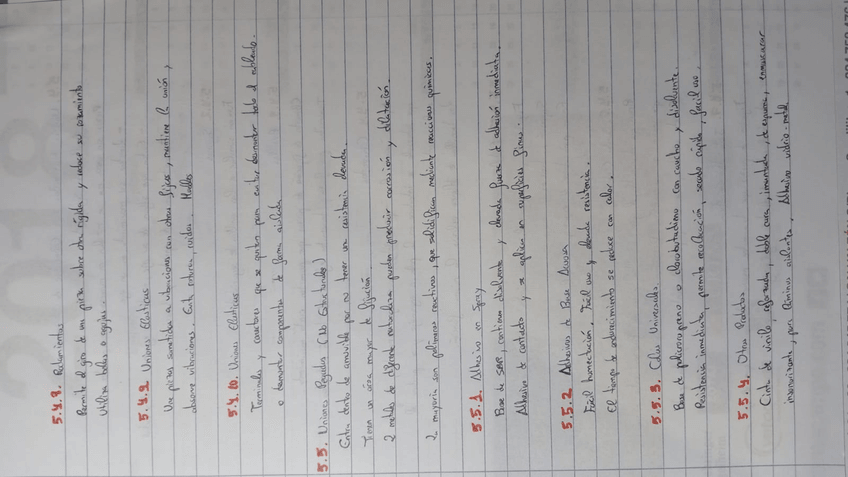 5.4.8. Rodamientos
Permite el giro de una pieza sobre otra rígida y reduce su rozamiento
Utiliza bolas o agujas.
5.4.9 Uniones Elásticas
Une piezas sometidas a vibraciones con otras fijas, mantiene la unión,
absorve vibraciones. Evita roturas, ruidos. Muelles
5.4.10. Uniones Elásticas
Terminales y conectores que se quitan para evitar desmontar todo el cableado.
o desmontar componentes de forma aislada
5.5. Uniones Pegadas (No Estructurales)
Entra dentro de amovible por no tener una resistencia elevada.
Tienen un área mayor de fijación
2 metales de diferente naturaleza pueden producir corrosión y dilatación.
La mayoría son polímeros reactivos, que solidifican mediante reacciones químicas.
5.5.1 Adhesivo en Spray
Base de disolvente y elevada fuerza de adhesión inmediata.
Adhesivo de contacto y se aplica en superficies finas.
5.5.2 Adhesivos de Base Acuosa
Fácil humectación, Fácil uso y elevada resistencia.
El tiempo de endurecimiento se reduce con calor.
5.5.3. Colas Universales
Base de policloropreno o clorobutadieno con caucho y disolvente.
Resistencia inmediata, permite recolocación, secado rápido, fácil uso.
5.5.4. Otros Productos
Cinta de vinilo, reforzada, doble cara, imantada, de espuma, enmascarar
insonorizante, para láminas aislantes, Adhesivo vidrio-metal